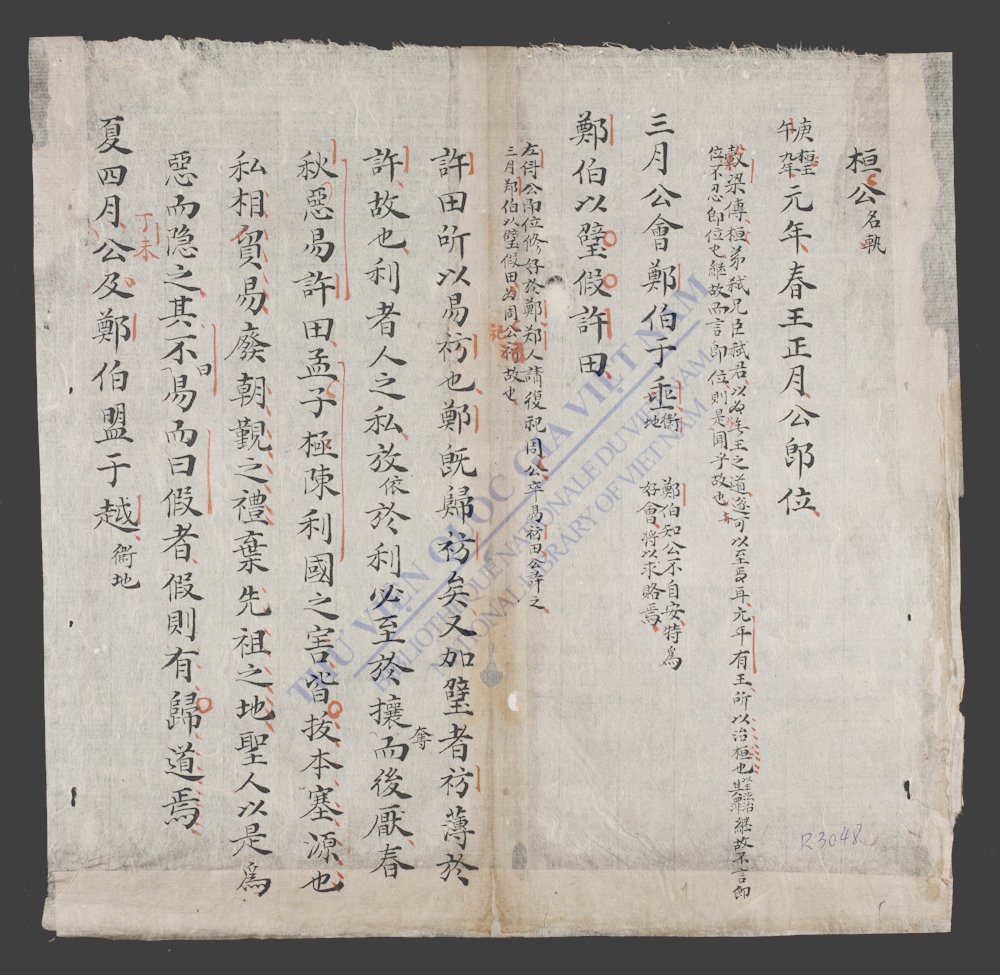 桓公名執
庚午 桓王九年 元年春王正月公即位
穀梁傳桓弟弒兄臣弒君以為無王之道遂可以至焉耳元年有王所以治桓也 繼故不言即
位不忍即位也継故而言即位則是聞乎故也
三月公會鄭伯于垂衛地 鄭伯知公不自安特為
好會將以求賂焉
鄭伯以璧假許田
左得公即位修好於鄭鄭人請復祀周公卒易祊田公許之
三月鄭伯以璧假田為周公祊故也
祀
許田所以易祊也鄭既歸祊矣又加璧者祊薄於
許故也利者人之私放依於利必至於攘奪而後厭春
秋惡易許田孟子極陳利國之害皆拔本塞源也
私相貿易廢朝覲之禮棄先祖之地聖人以是為
惡而隐之其不曰易而曰假者假則有歸道焉
夏四月丁未公及鄭伯盟于越衛地
THƯ VIỆN QUỐC GIA VIỆT NAM
BIBLIOTHEQUE NATIONALE DU VIETNAM
NATIONAL LIBRARY OF VIETNAM
R3048